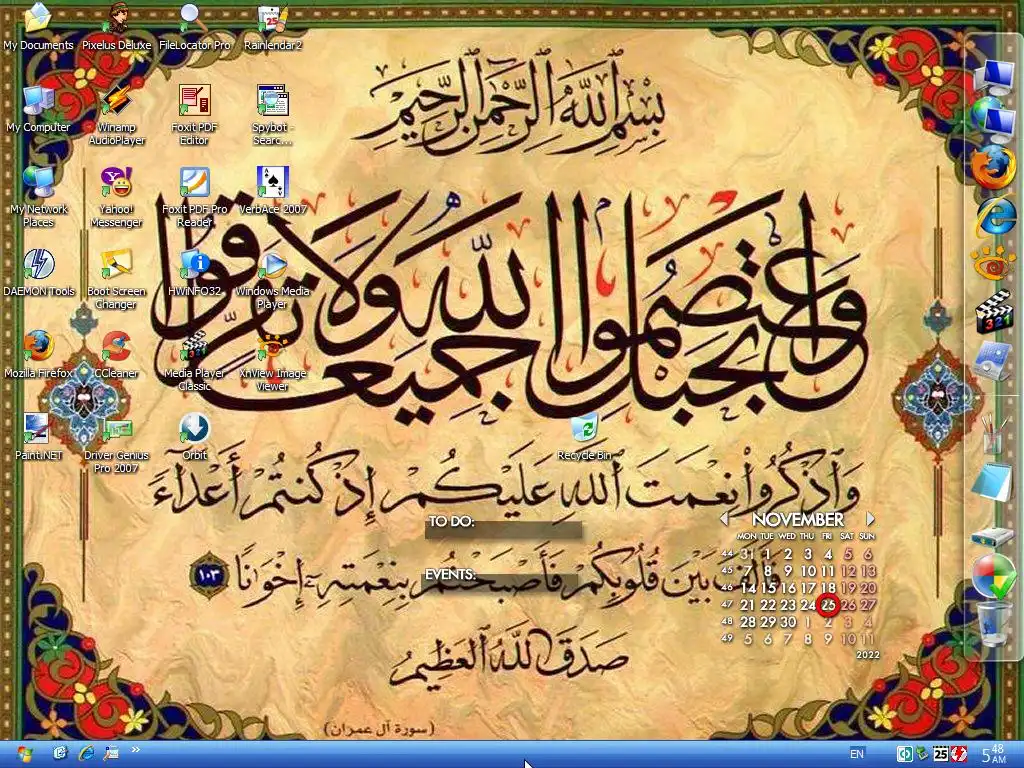 My Documents
Pixelus Deluxe
FileLocator Pro
Rainlendar2
My Computer
Winamp
AudioPlayer
Foxit PDF
Editor
Spybot -
Searc...
My Network
Places
Yahoo!
Messenger
Foxit PDF Pro
Reader
VerbAce 2007
DAEMON Tools
Boot Screen
Changer
HWiNFO32
Windows Media
Player
Mozilla Firefox
CCleaner
Media Player
Classic
XnView Image
Viewer
Paint.NET
Driver Genius
Pro 2007
Orbit
Recycle Bin
بِسْمِ اللَّهِ الرَّحْمَنِ الرَّحِيمِ
وَاعْتَصِمُوا بِحَبْلِ اللَّهِ جَمِيعًا وَلَا تَفَرَّقُوا
وَاذْكُرُوا نِعْمَتَ اللَّهِ عَلَيْكُمْ إِذْ كُنتُمْ أَعْدَاءً
بَيْنَ قُلُوبِكُمْ فَأَصْبَحْتُم بِنِعْمَتِهِ إِخْوَانًا ١٠٣
صَدَقَ اللَّهُ الْعَظِيمُ
(سورة آل عمران)
TO DO:
EVENTS:
NOVEMBER
MON TUE WED THU FRI SAT SUN
44 31 1 2 3 4 5 6
45 7 8 9 10 11 12 13
46 14 15 16 17 18 19 20
47 21 22 23 24 25 26 27
48 28 29 30 1 2 3 4
49 5 6 7 8 9 10 11
2022
321
EN
25
5 48 AM